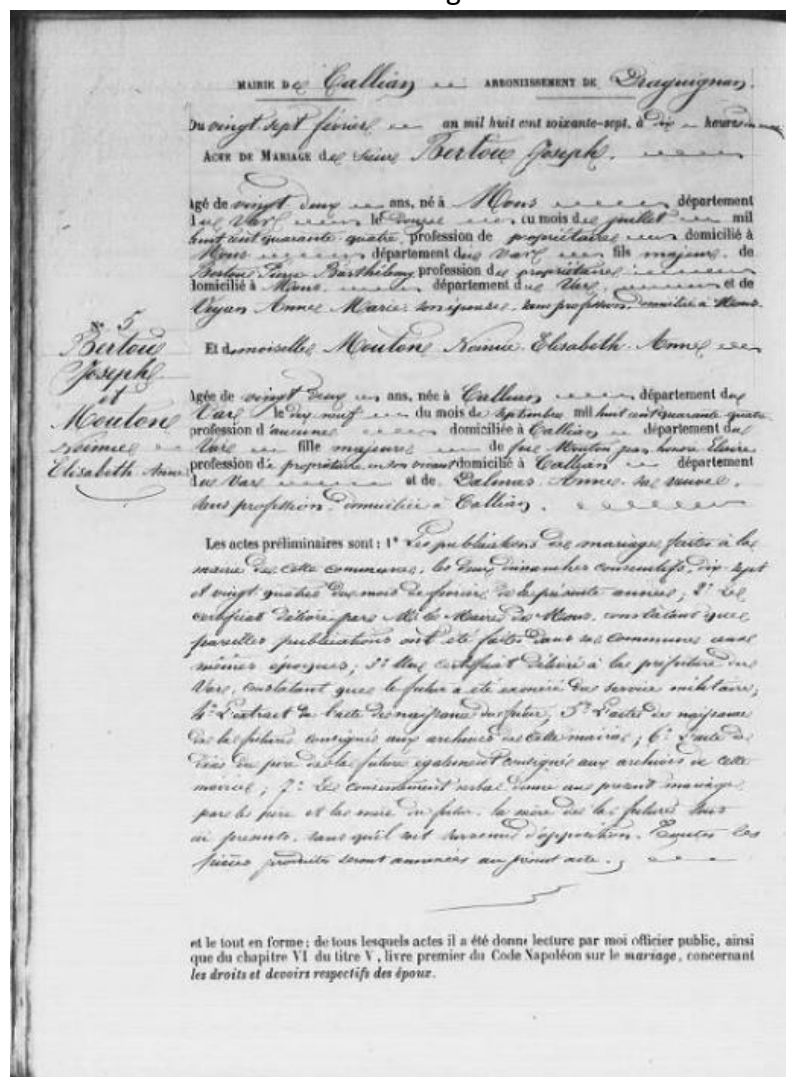 MAIRIE DE Callian ARRONDISSEMENT DE Draguignan.
Du vingt sept février an mil huit cent soixante-sept, à dix heures
ACTE DE MARIAGE de sieur Bertou Joseph.
Agé de vingt deux ans, né à Mons département
du Var le douze du mois de juillet mil
huit cent quarante quatre, profession de propriétaire domicilié à
Mons département du Var fils majeur de
Bertou Pierre Barthélemy profession de propriétaire
domicilié à Mons département du Var, et de
Anne Marie son épouse, sans profession domiciliée à Mons.
N° 5
Bertou
Joseph
et
Mouton
Noémie
Elisabeth Anne
Et demoiselle Mouton Noémie Elisabeth Anne
Agée de vingt deux ans, née à Callian département du
Var le dix neuf du mois de septembre mil huit cent quarante quatre
profession d'aucune domiciliée à Callian département du
Var fille majeure de feu Mouton honoré
profession de propriétaire en son vivant domicilié à Callian département
du Var et de Dalmas Anne sa veuve,
sans profession domiciliée à Callian.
Les actes préliminaires sont : 1° Les publications de mariage faites à la
mairie de cette commune, les deux dimanches consécutifs, dix-sept
et vingt quatre du mois de février de la présente année ; 2° Le
certificat délivré par Mr le Maire de Mons, constatant que
pareilles publications ont été faites dans sa commune aux
mêmes époques ; 3° Un certificat délivré à la préfecture du
Var, constatant que le futur a été exonéré du service militaire ;
4° L'extrait de l'acte de naissance du futur ; 5° L'acte de naissance
de la future consigné aux archives de cette mairie ; 6° L'acte de
décès du père de la future également consigné aux archives de cette
mairie ; 7° Le consentement verbal donné au présent mariage
par le père et la mère du futur, la mère de la future tous
ici présents, sans qu'il soit survenu d'opposition. Toutes les
pièces produites seront annexées au présent acte.
et le tout en forme ; de tous lesquels actes il a été donné lecture par moi officier public, ainsi
que du chapitre VI du titre V, livre premier du Code Napoléon sur le mariage, concernant
les droits et devoirs respectifs des époux.